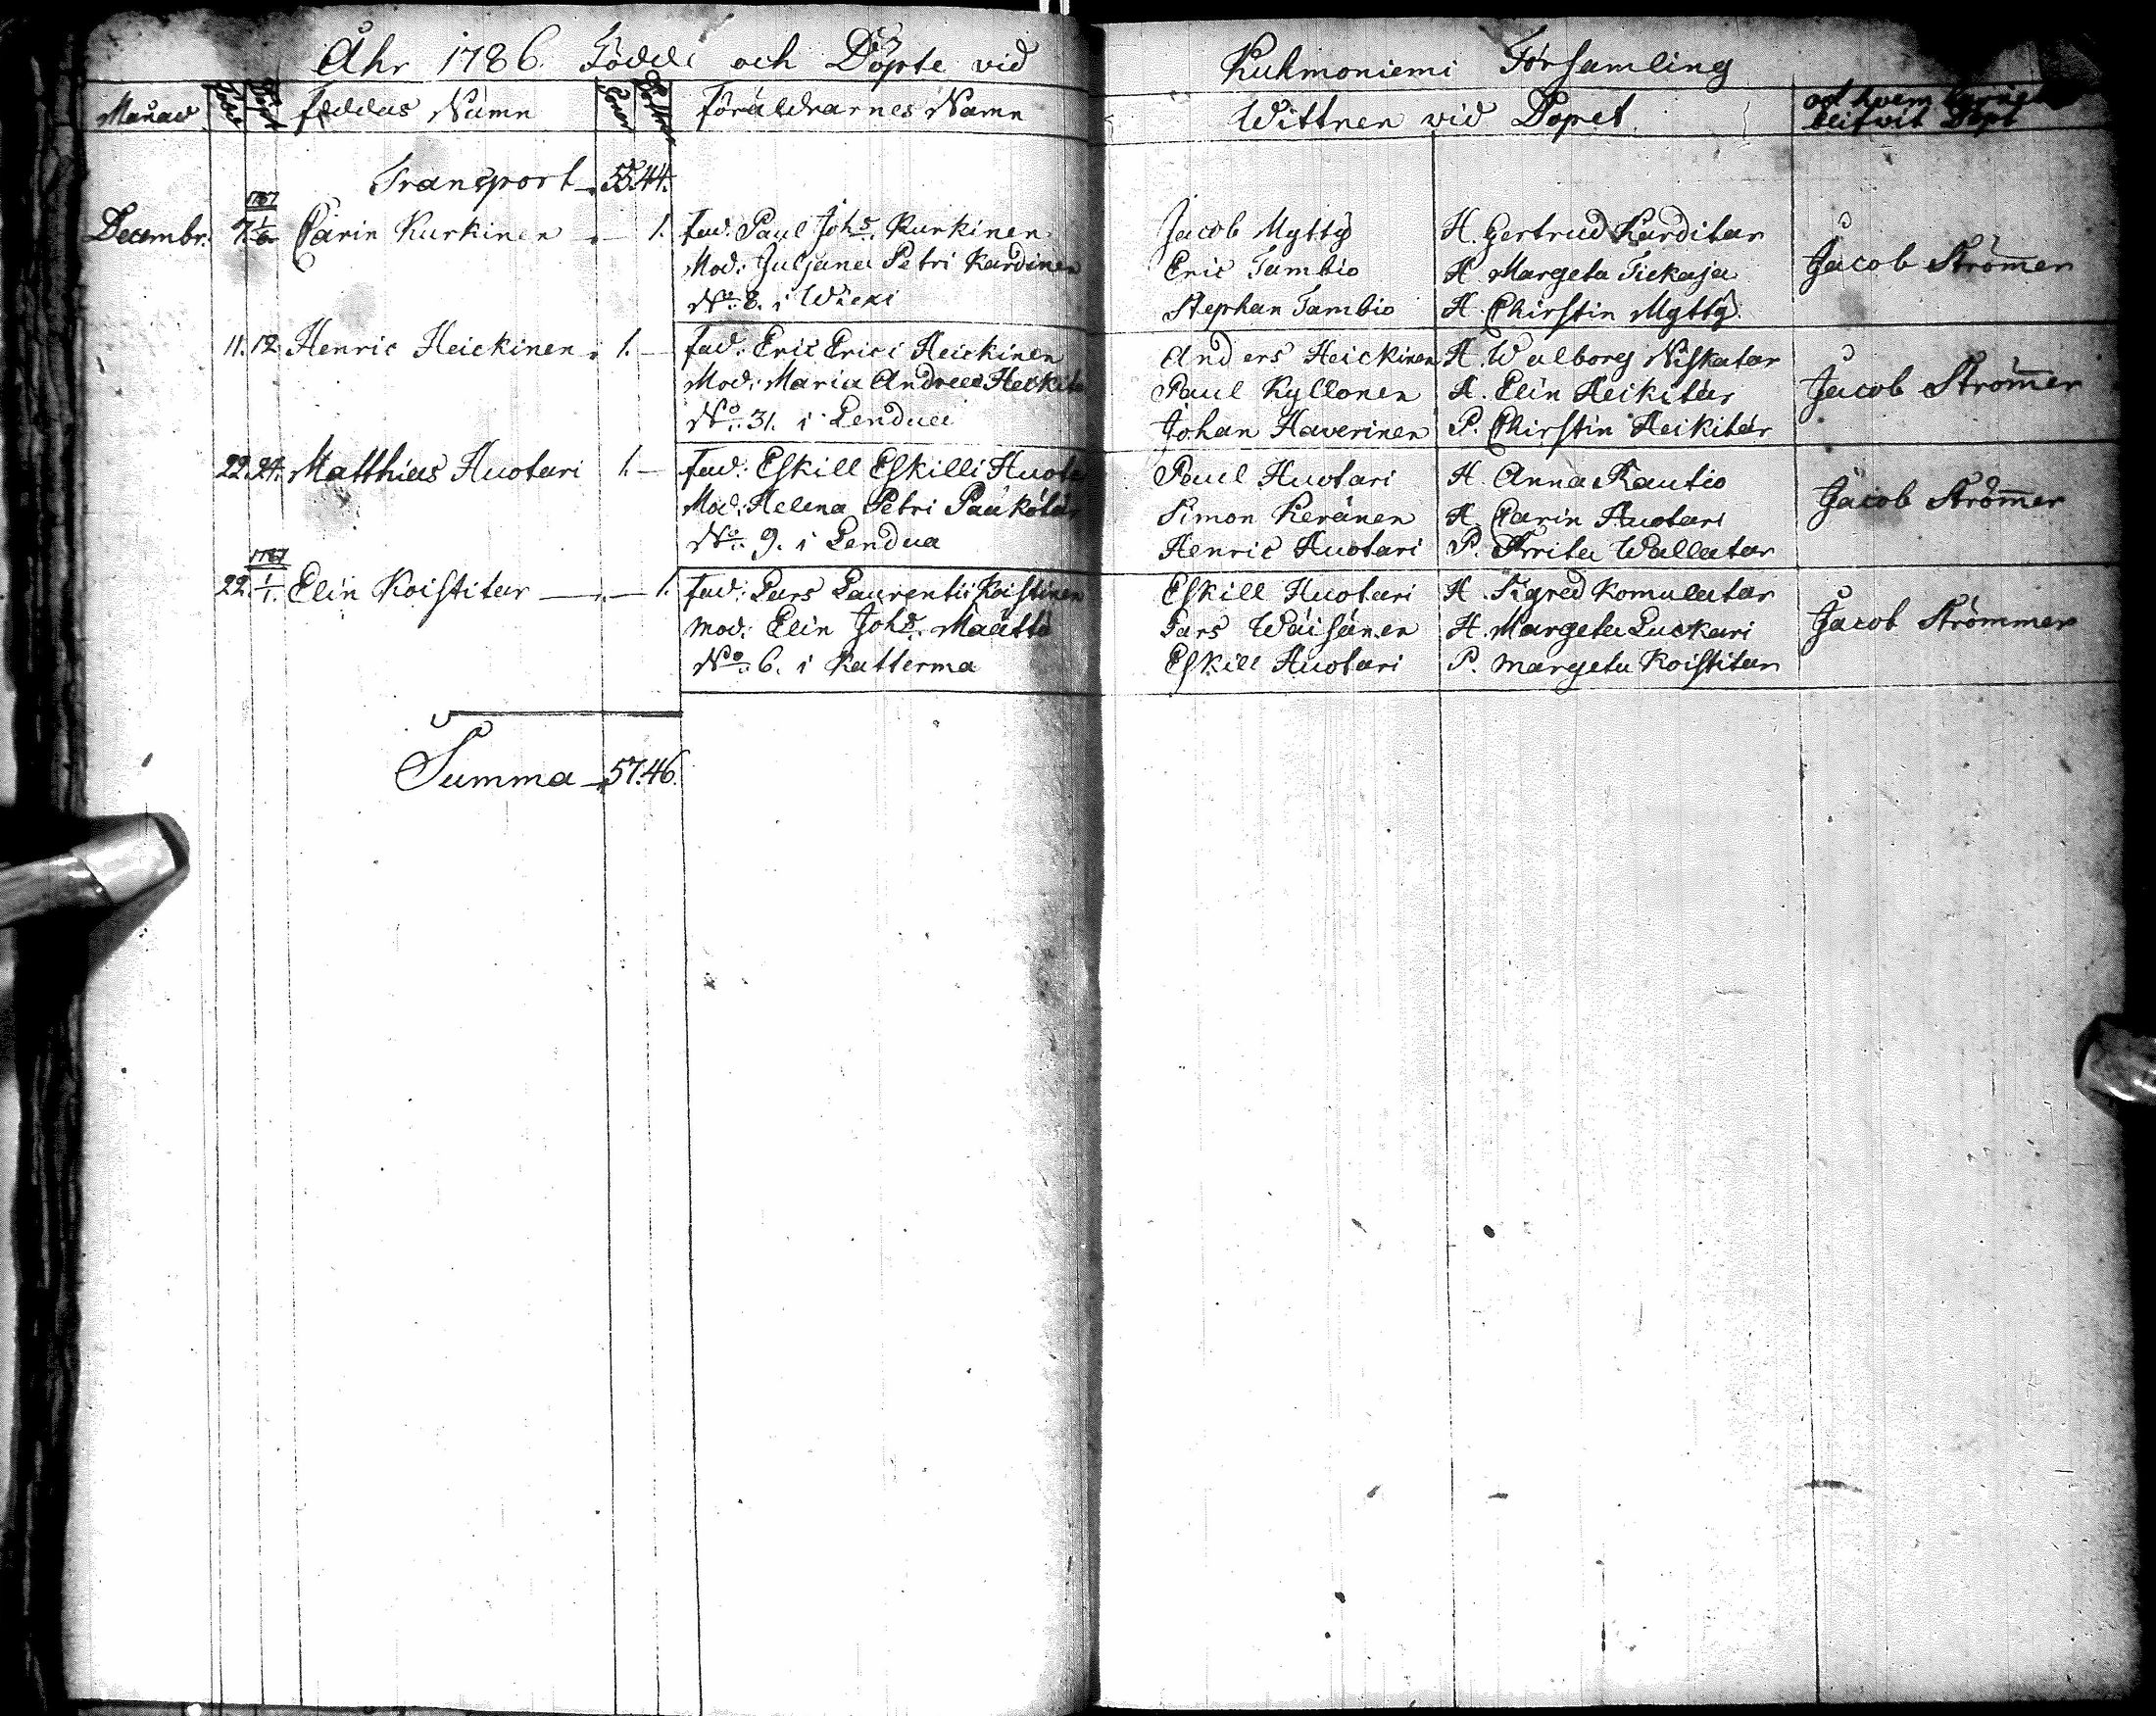 Åhr 1786 Födde och Döpte vid Kuhmoniemi Församling
Månad Född Döpt Föddas Namn Söner Döttrar Föräldrarnes Namn Wittnen vid Dopet
af hvem barnet
blifvit Döpt
Transport 55. 44.
1787
Decembr. 7. 1/6 Carin Kurkinen — 1. Fad: Paul Johs. Kurkinen Jacob Mytty H. Gertrud Karditar
Mod: Juljana Petri Kardinen Eric Tambio H. Margeta Tiekaja Jacob Strömer
No. 8. i Wieki Stephan Tambio H. Chirstin Mytty
11. 12 Henric Heickinen 1. — Fad: Eric Erici Heickinen Anders Heickinen H. Walborg Niskatar
Mod: Maria Andreæ Heikit Paul Kyllonen H. Elin Heikitär Jacob Strömer
No. 31. i Lendua Johan Haverinen P. Chirstin Heikitär
22. 24. Matthias Huotari 1. — Fad: Eskill Eskilli Huota Paul Huotari H. Anna Rautio
Mod: Helena Petri Simon Keränen H. Carin Huotari Jacob Strömer
No. 9. i Lendua Henric Huotari P. Wallatar
1787
22. 1/1. Elin Koistitar — 1. Fad: Lars Laurentii Koistinen Eskill Huotari H. Sigred Komulatar
Mod: Elin Johs. Määttä Lars Wäisänen H. Margeta Luckari Jacob Strömmer
No. 6. i Katterma Eskill Huotari P. Margeta Koistitar
Summa 57. 46.